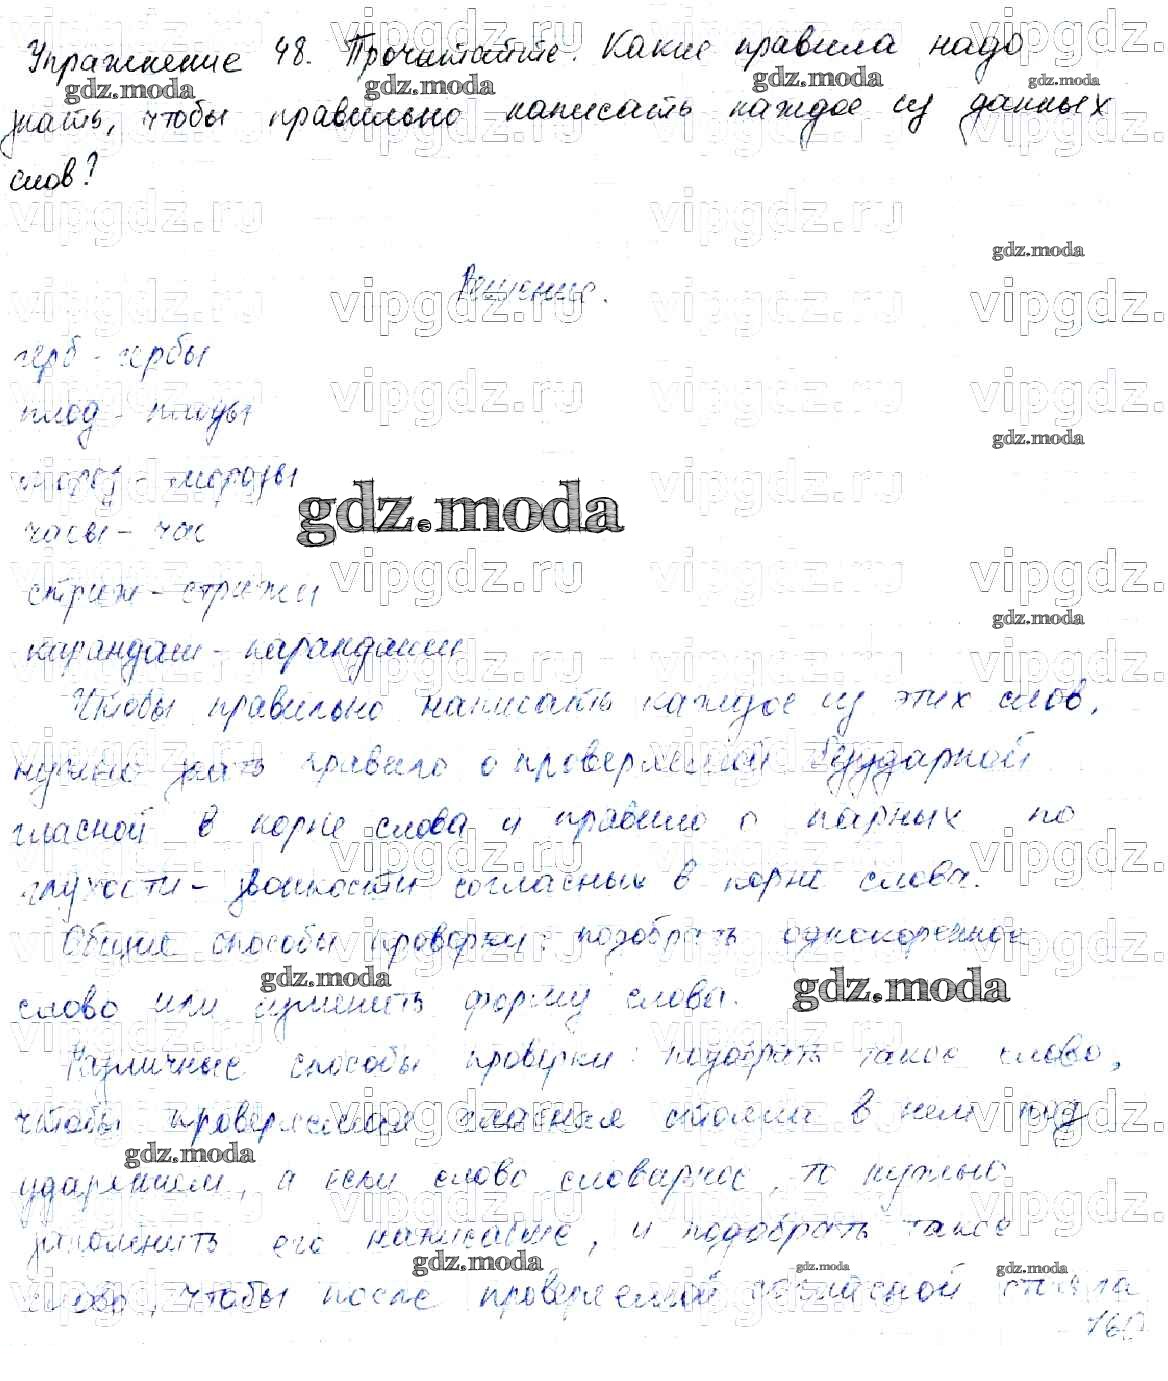 Упражнение 48. Прочитайте. Какие правила надо
знать, чтобы правильно написать каждое из данных
слов?
Решение.
герб - гербы
плод - плоды
мороз - морозы
часы - час
стриж - стрижи
карандаш - карандаши
Чтобы правильно написать каждое из этих слов,
нужно знать правило о проверяемой безударной
гласной в корне слова и правило о парных по
глухости - звонкости согласных в корне слова.
Общие способы проверки: подобрать однокоренное
слово или изменить форму слова.
Различные способы проверки: подобрать такое слово,
чтобы проверяемая гласная стояла в нем под
ударением, а если слово словарное, то нужно
запомнить его написание, и подобрать такое
слово, чтобы после проверяемой согласной стояла
vipgdz.ru
gdz.moda